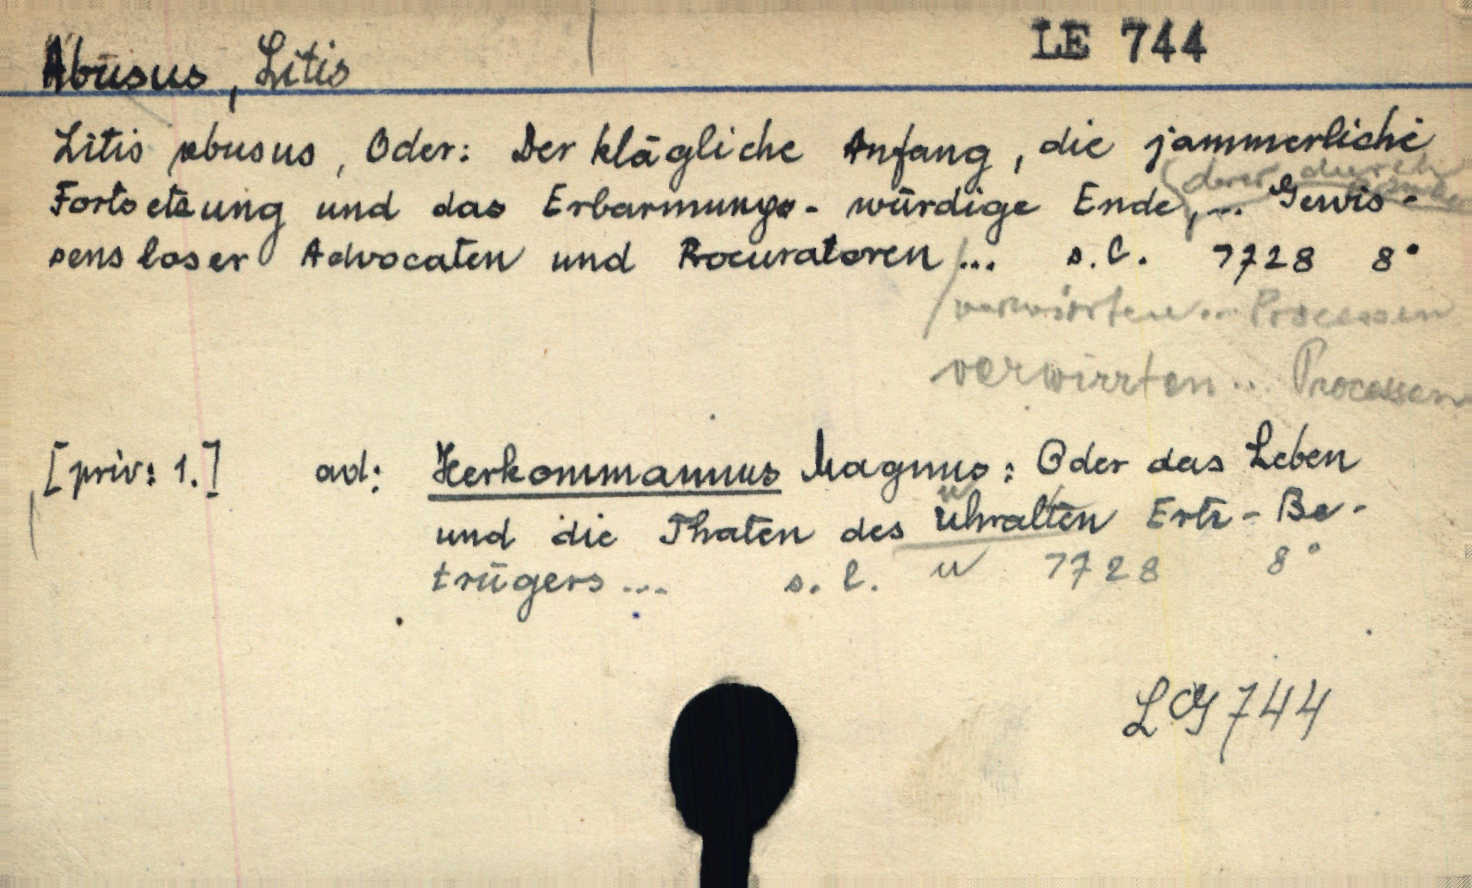 LE 744
Abusus, Litis
Litis abusus, Oder: Der klägliche Anfang, die jammerliche
derer durch
Fortsetzung und das Erbarmungs-würdige Ende, ... Gewis-
sensloser Advocaten und Procuratoren ... s.l. 1728 8°
verwirrten ... Processen
verwirrten ... Processen
[priv: 1.] ad: Herkommannus Magnus: Oder das Leben
und die Thaten des Uhralten Ertz-Be-
trügers ... s.l. 1728 8°
LG 744